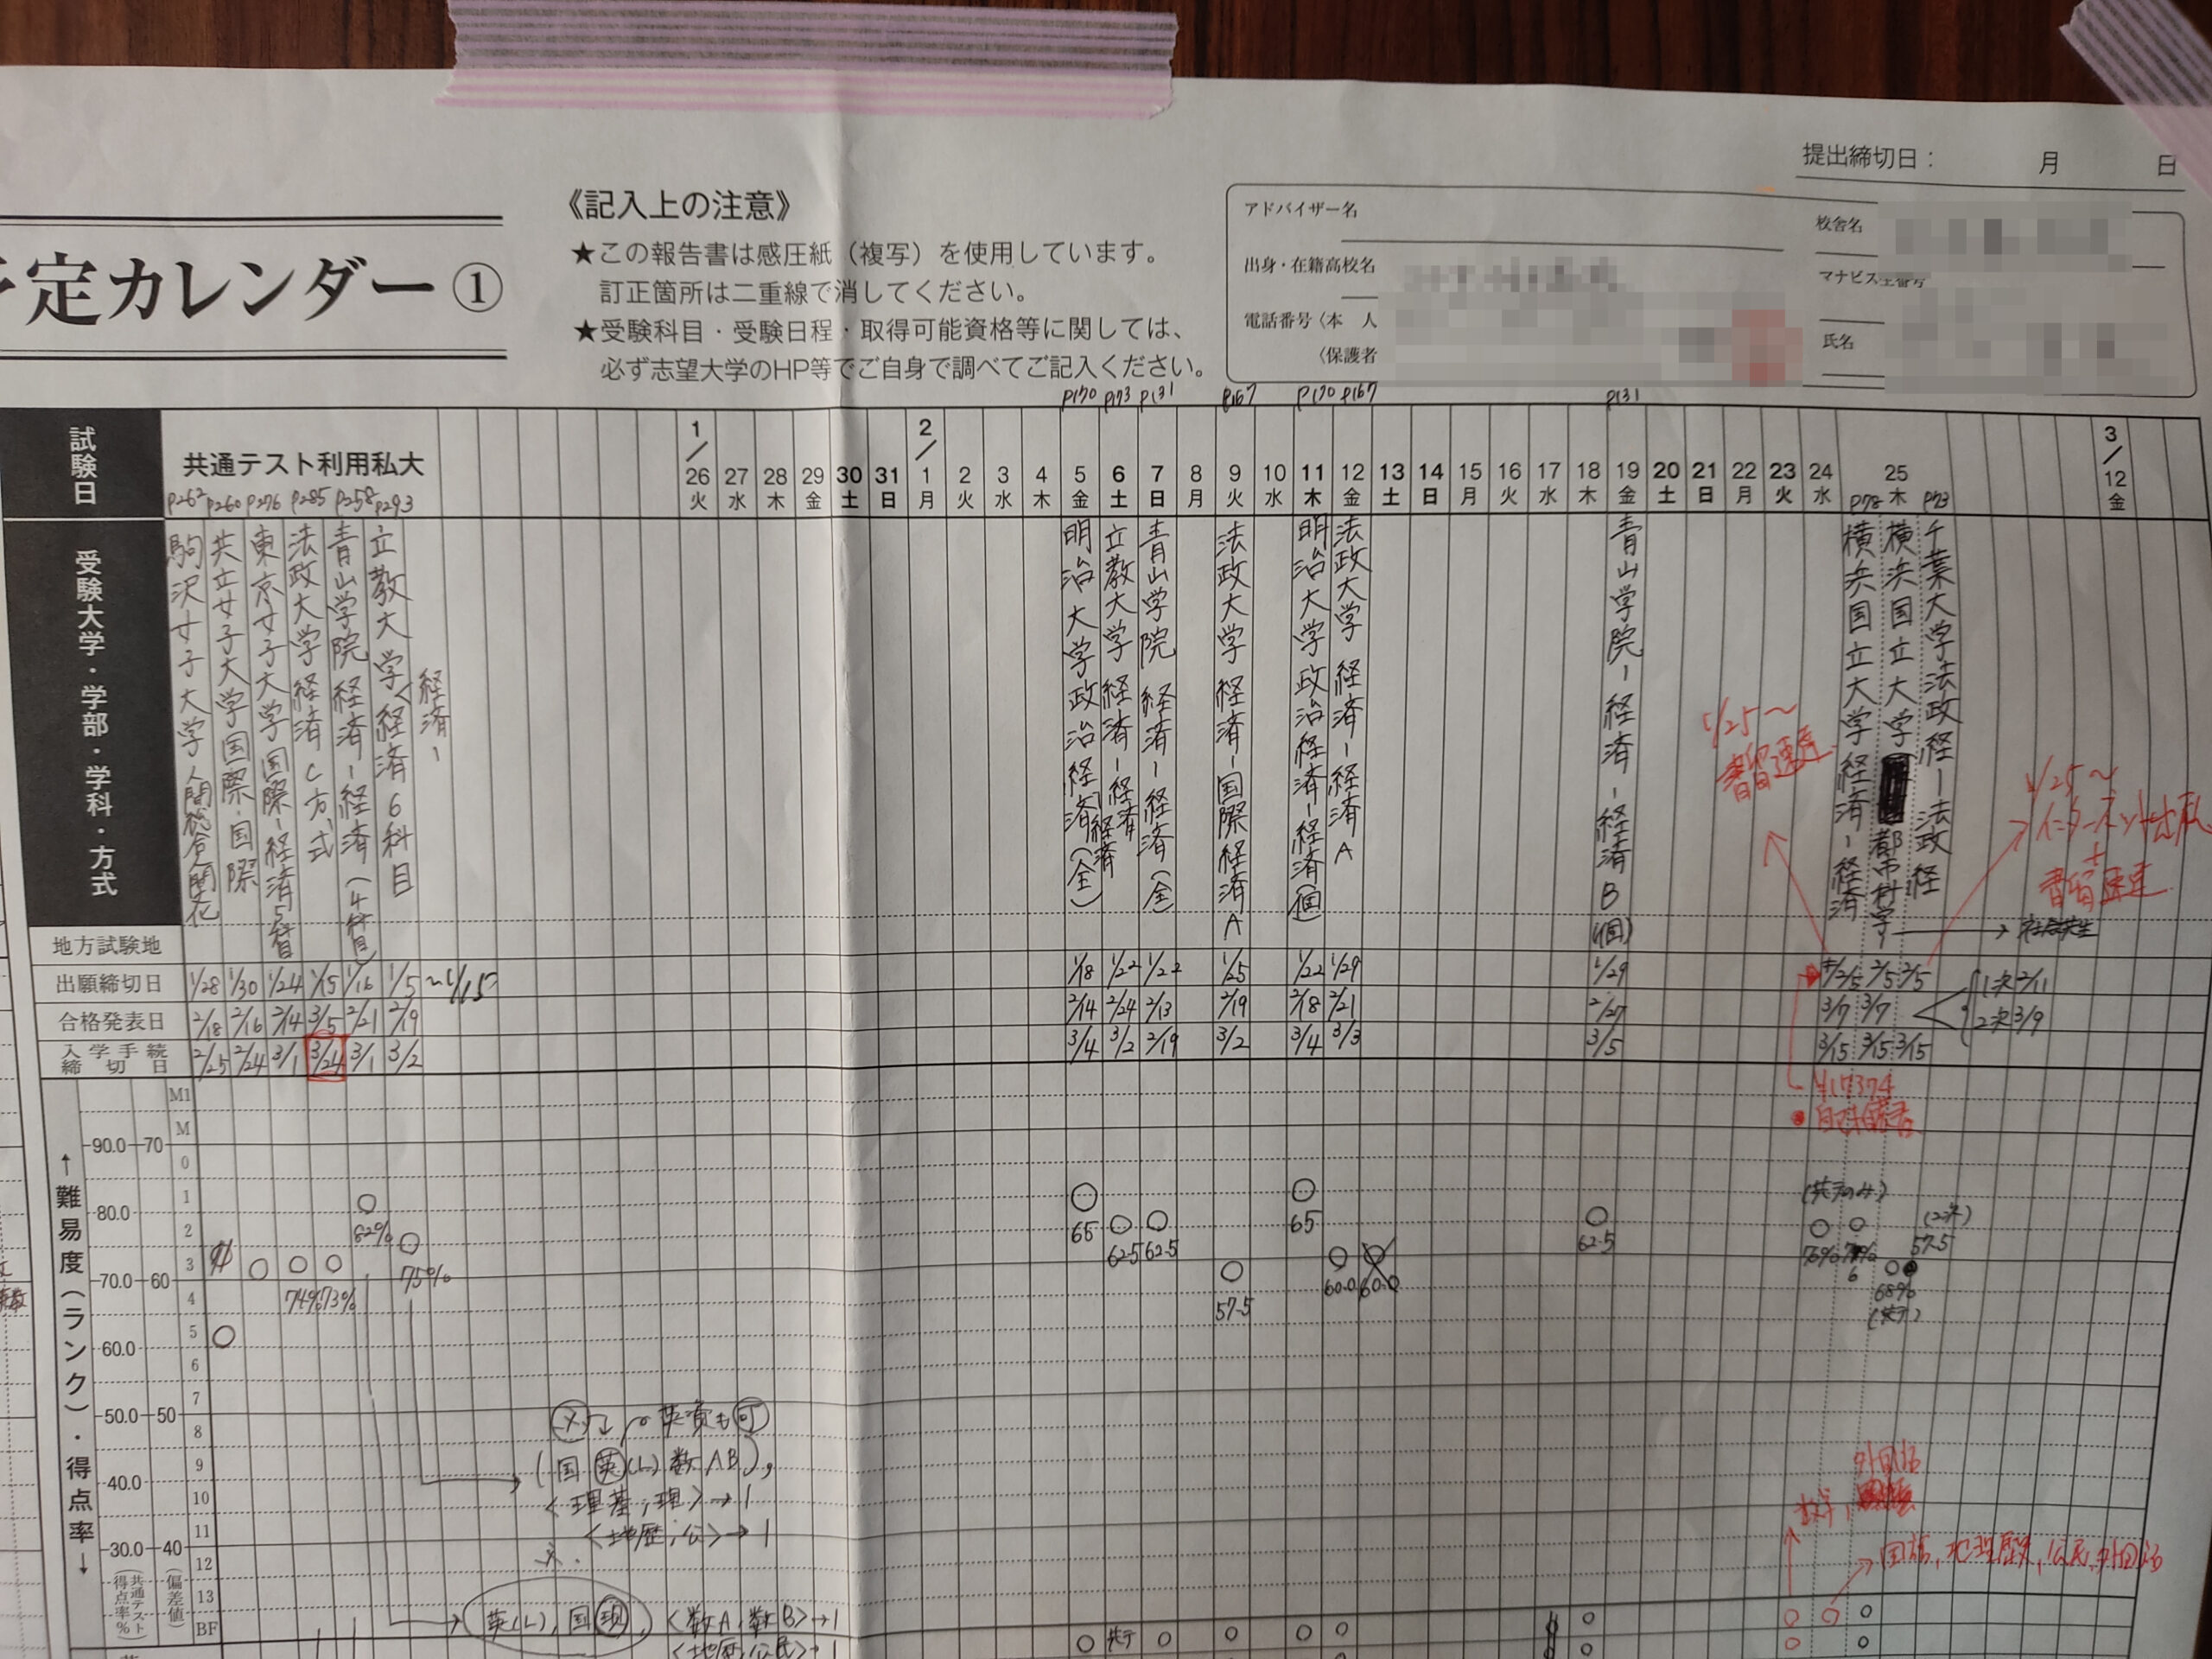 提出締切日： 月 日
予定カレンダー①
《記入上の注意》
★この報告書は感圧紙（複写）を使用しています。
訂正箇所は二重線で消してください。
★受験科目・受験日程・取得可能資格等に関しては、
必ず志望大学のHP等でご自身で調べてご記入ください。
アドバイザー名
校舎名
出身・在籍高校名
マナビス生番号
電話番号〈本 人
〈保護者
氏名
P170 P173 P131 P167 P170 P167 P131
試験日
共通テスト利用私大
P262 P260 P276 P285 P258 P293
1/26 27 28 29 30 31 2/1 2 3 4 5 6 7 8 9 10 11 12 13 14 15 16 17 18 19 20 21 22 23 24 25 3/12
火 水 木 金 土 日 月 火 水 木 金 土 日 月 火 水 木 金 土 日 月 火 水 木 金 土 日 月 火 水 木 金
P78 P73
受験大学・学部・学科・方式
駒沢女子大学 人間総合 人間文化
共立女子大学 国際-国際
東京女子大学 国際-経済 5科目
法政大学 経済 C方式
青山学院 経済-経済(4科目)
立教大学 経済 6科目
経済-
明治大学 政治経済(全)
立教大学 経済-経済
経済
青山学院 経済-経済(全)
法政大学 経済-国際経済A
明治大学 政治経済-経済(個)
法政大学 経済-経済A
青山学院-経済-経済B(個)
横浜国立大学 経済-経済
横浜国立大学 都市科学-
千葉大学 法政経-法政経
1/25〜
書留速達
1/25〜
インターネット出願
+
書留速達
地方試験地
出願締切日
1/28 1/30 1/24 1/15 1/16 1/5 〜1/15 1/18 1/22 1/22 1/25 1/22 1/29 1/29 2/5 2/5 2/5
合格発表日
2/18 2/16 2/14 3/5 2/21 2/19 2/14 2/24 2/13 2/19 2/18 2/21 2/27 3/7 3/7
1次 2/11
2次 3/9
入学手続締切日
2/25 2/24 3/1 3/24 3/1 3/2 3/4 3/2 2/19 3/2 3/4 3/3 3/5 3/15 3/15 3/15
¥17374
←難易度（ランク）・得点率→
M1
M
90.0 70
0
1
80.0
2
3
70.0 60
4
5
60.0
6
7
50.0 50
8
9
40.0
10
11
30.0 40
12
13
BF
（共通テスト得点率%）
（偏差値）
82%
75%
74% 73%
65
62.5 62.5
57.5
65
60.0 60.0
62.5
(共テのみ)
76%
(2次)
57.5
68%
(共テ)
英資も可
(国 英(L) 数AB),
<理基,理>→1
<地歴,公>→1
英(L), 国現, <数A,数B>→1
<地歴,公民>→1
共テ
数学,
外国語
国語, 地理歴史, 公民, 外国語